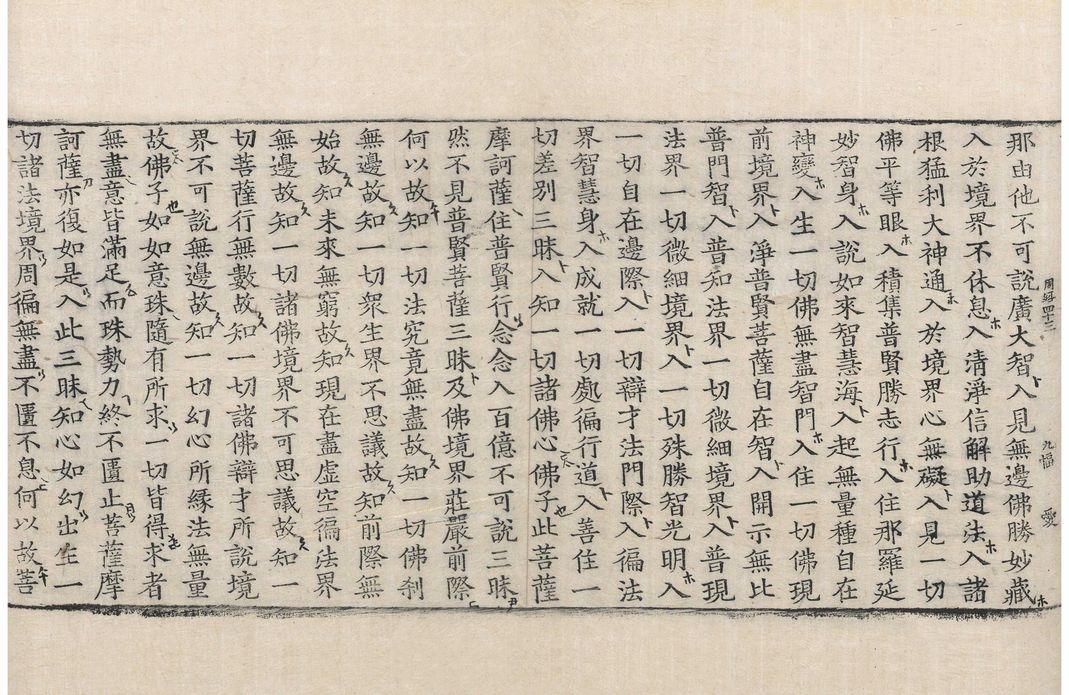 那由他不可說廣大智入見無邊佛勝妙藏
周經四十三 九幅
入於境界不休息入清淨信解助道法入諸
根猛利大神通入於境界心無礙入見一切
佛平等眼入積集普賢勝志行入住那羅延
妙智身入說如來智慧海入起無量種自在
神變入生一切佛無盡智門入住一切佛現
前境界入淨普賢菩薩自在智入開示無比
普門智入普知法界一切微細境界入普現
法界一切微細境界入一切殊勝智光明入
一切自在邊際入一切辯才法門際入徧法
界智慧身入成就一切處徧行道入善住一
切差別三昧入知一切諸佛心佛子此菩薩
摩訶薩住普賢行念念入百億不可說三昧
然不見普賢菩薩三昧及佛境界莊嚴前際
何以故知一切法究竟無盡故知一切佛刹
無邊故知一切衆生界不思議故知前際無
始故知未來無窮故知現在盡虛空徧法界
無邊故知一切諸佛境界不可思議故知一
切菩薩行無數故知一切諸佛辯才所說境
界不可說無邊故知一切幻心所緣法無量
故佛子如如意珠隨有所求一切皆得求者
無盡意皆滿足而珠勢力終不匱止菩薩摩
訶薩亦復如是入此三昧知心如幻出生一
切諸法境界周徧無盡不匱不息何以故菩